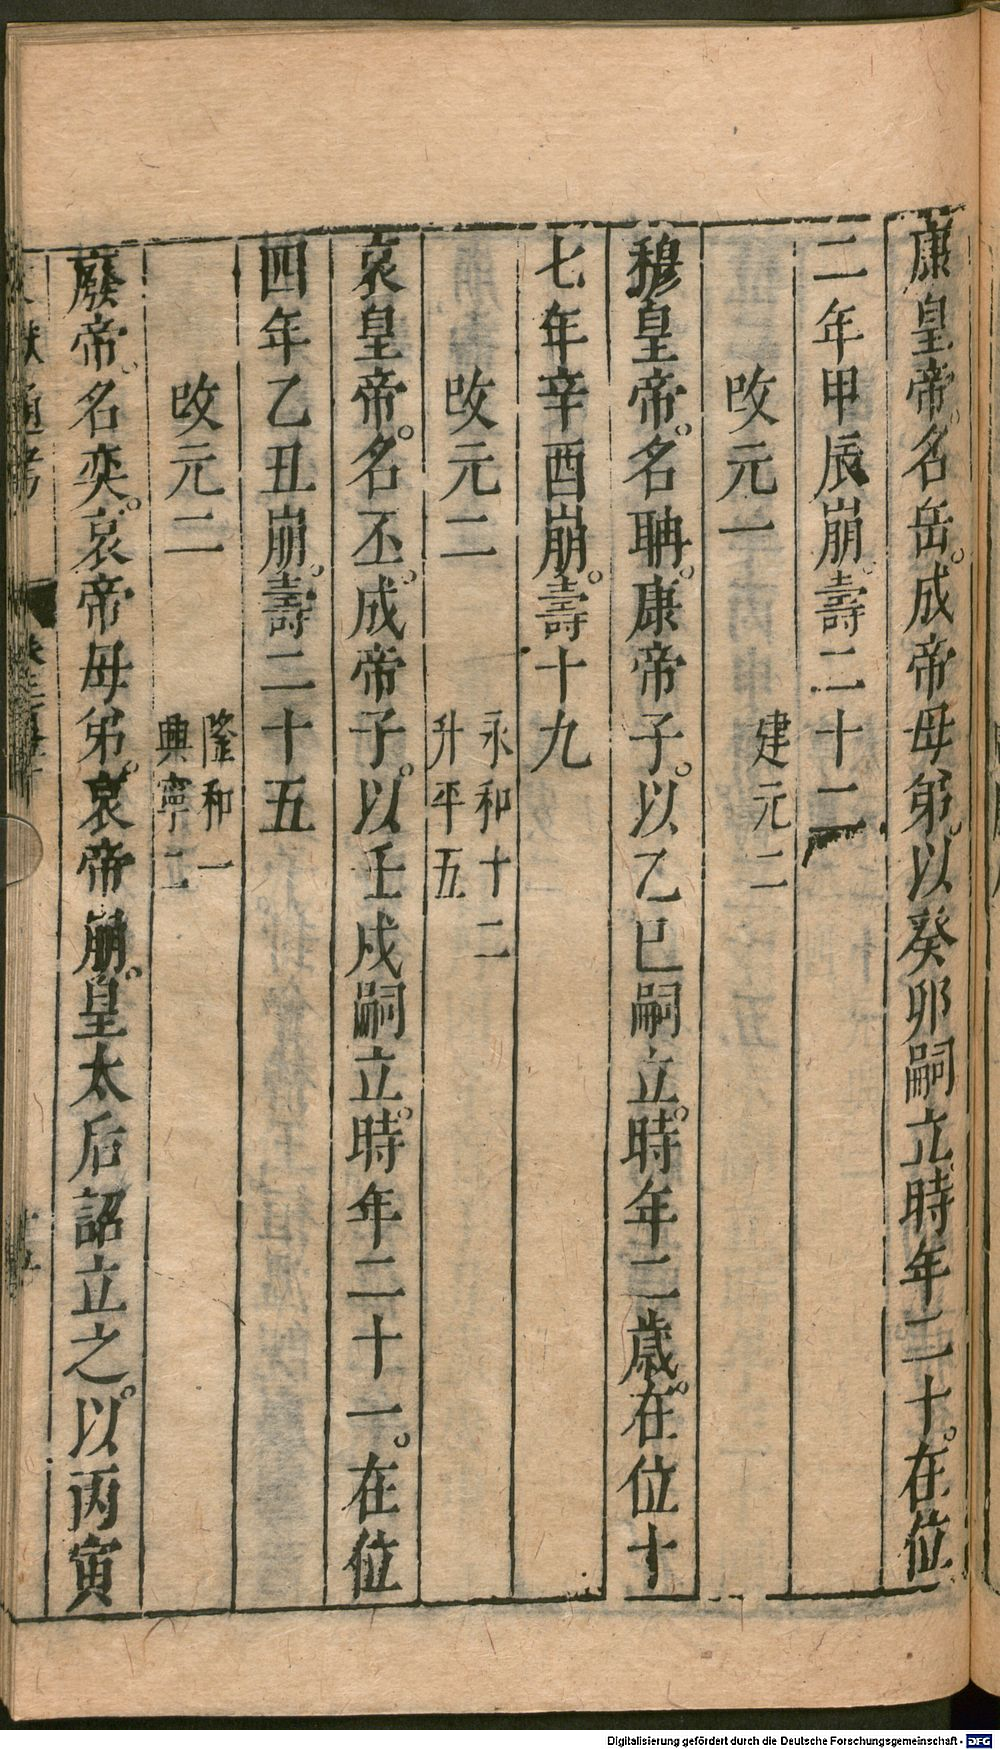 康皇帝。名岳。成帝母弟。以癸卯嗣立。時年二十。在位
二年甲辰崩。壽二十二
改元一
建元二
穆皇帝。名聃。康帝子。以乙巳嗣立。時年二歲。在位十
七年辛酉崩。壽十九
改元二
永和十二
升平五
哀皇帝。名丕。成帝子。以壬戌嗣立。時年二十一。在位
四年乙丑崩。壽二十五
改元二
隆和一
興寧二
廢帝。名奕。哀帝母弟。哀帝崩。皇太后詔立之。以丙寅
獻通考
Digitalisierung gefördert durch die Deutsche Forschungsgemeinschaft - DFG